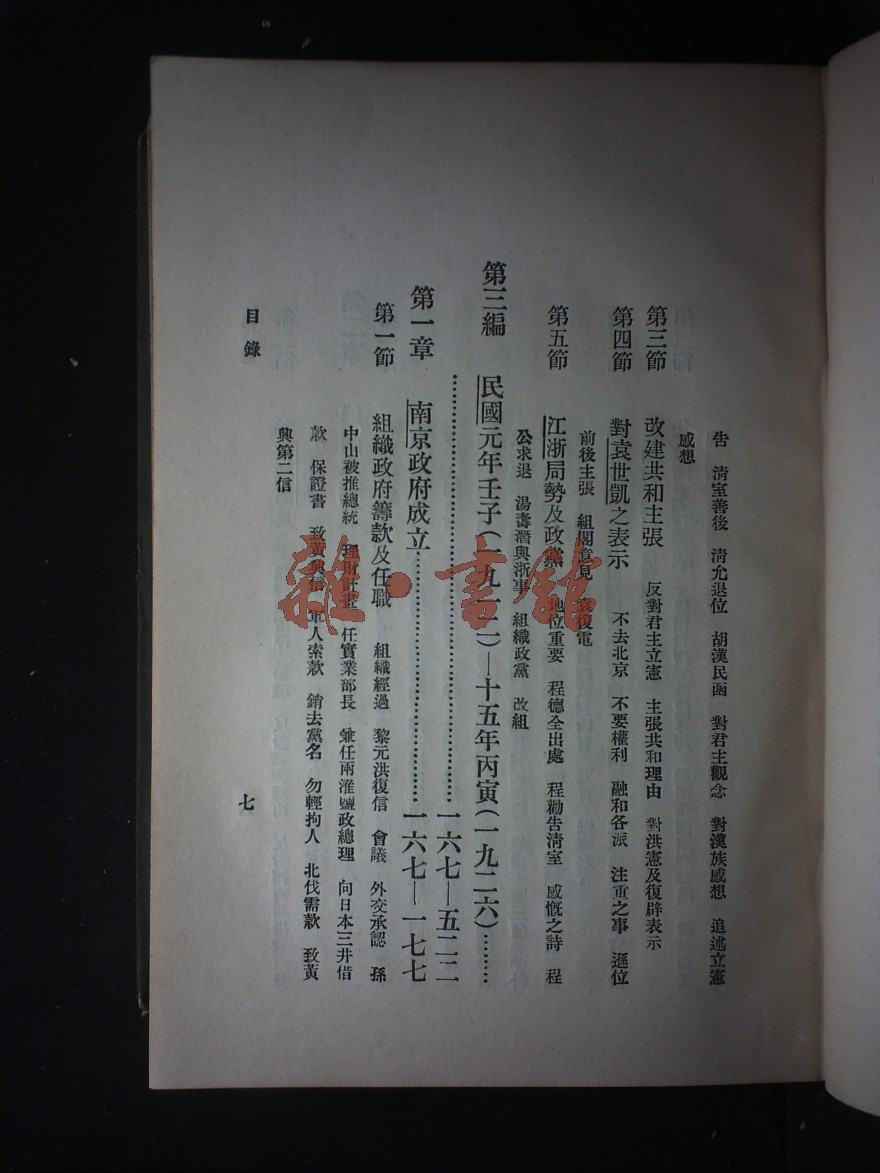 告　淸室善後　淸允退位　胡漢民函　對君主觀念　對漢族感想　追述立憲
感想
第三節　改建共和主張　反對君主立憲　主張共和理由　對洪憲及復辟表示
第四節　對袁世凱之表示　不去北京　不要權利　融和各派　注重之事　遜位
前後主張　組閣意見　袁復電
第五節　江浙局勢及政黨　地位重要　程德全出處　程勸告淸室　感慨之詩　程
公求退　湯壽潛與浙事　組織政黨　改組
第三編　民國元年壬子(一九一二)—十五年丙寅(一九二六)………
……………………………………一六七—五二二
第一章　南京政府成立……………………一六七—一七七
第一節　組織政府籌款及任職　組織經過　黎元洪復信　會議　外交承認　孫
中山被推總統　理財計畫　任實業部長　兼任兩淮鹽政總理　向日本三井借
款　保證書　致黃興信　軍人索款　銷去黨名　勿輕拘人　北伐需款　致黃
興第二信
目錄
七
雜·書館